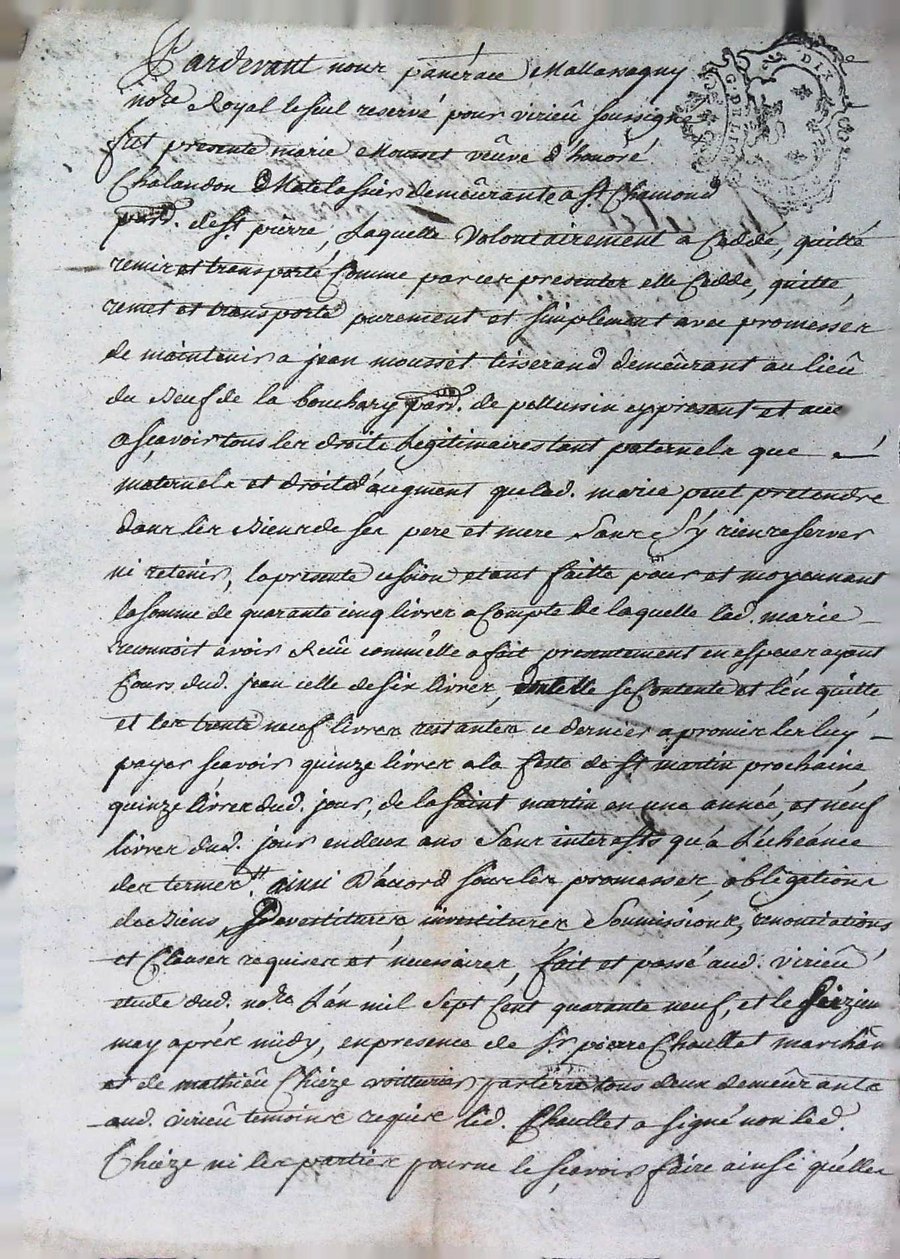 Pardevant nous pancrace Mallassagny
no.re Royal le seul reservé pour virieû soussigné
fut presente marie Mousset veûve d'honoré
Chalandon Matelassier demeûrante a st Chamond
parr. de st pierre, Laquelle volontairement a Ceddé, quitté
remis et transporté Comme par ces presentes elle Cedde, quitte,
remet et transporte purement et simplement avec promesses
de maintenir a jean mousset tisserand demeûrant au lieû
du de la bouchary parr. de pellussin cy present et acc
a sçavoir tous les droits Legitimaires tant paternels que
maternels et droits d'augment que lad. marie peut pretendre
dans les Biens de ses pere et mere sans s'y rien reserver
ni retenir, la presente cession etant faitte pour et moyennant
la somme de quarante cinq livres a Compte de laquelle lad. marie
reconnoit avoir Reçû comm'elle a fait presentement en especes ayant
Cours dud. jean celle de six livres, dont elle se Contente et l'en quitte,
et les trente neuf livres restantes ce dernier a promis les luy
payer scavoir quinze livres a la feste de st martin prochaine
quinze livres dud. jour, de la saint martin en une année, et neuf
livres dud. jour en deux ans sans interests qu'a L'echéance
des termes. ainsi D'acord sous les promesses, obligations
de Biens, Devestitures investitures soumissions, renonciations
et Clauses requises et necessaires, fait et passé aud. virieû
etude dud. no.re L'an mil sept Cent quarante neuf, et le seizie
may aprés midy, en presence de sr pierre Chaullet marchân
et de mathieû Chieze voitturier par terre tous deux demeûrants
aud. virieû temoins requis led. Chaullet a signé non led.
Chieze ni les parties pour ne le sçavoir faire ainsi qu'elles
G. DE LION
DIX